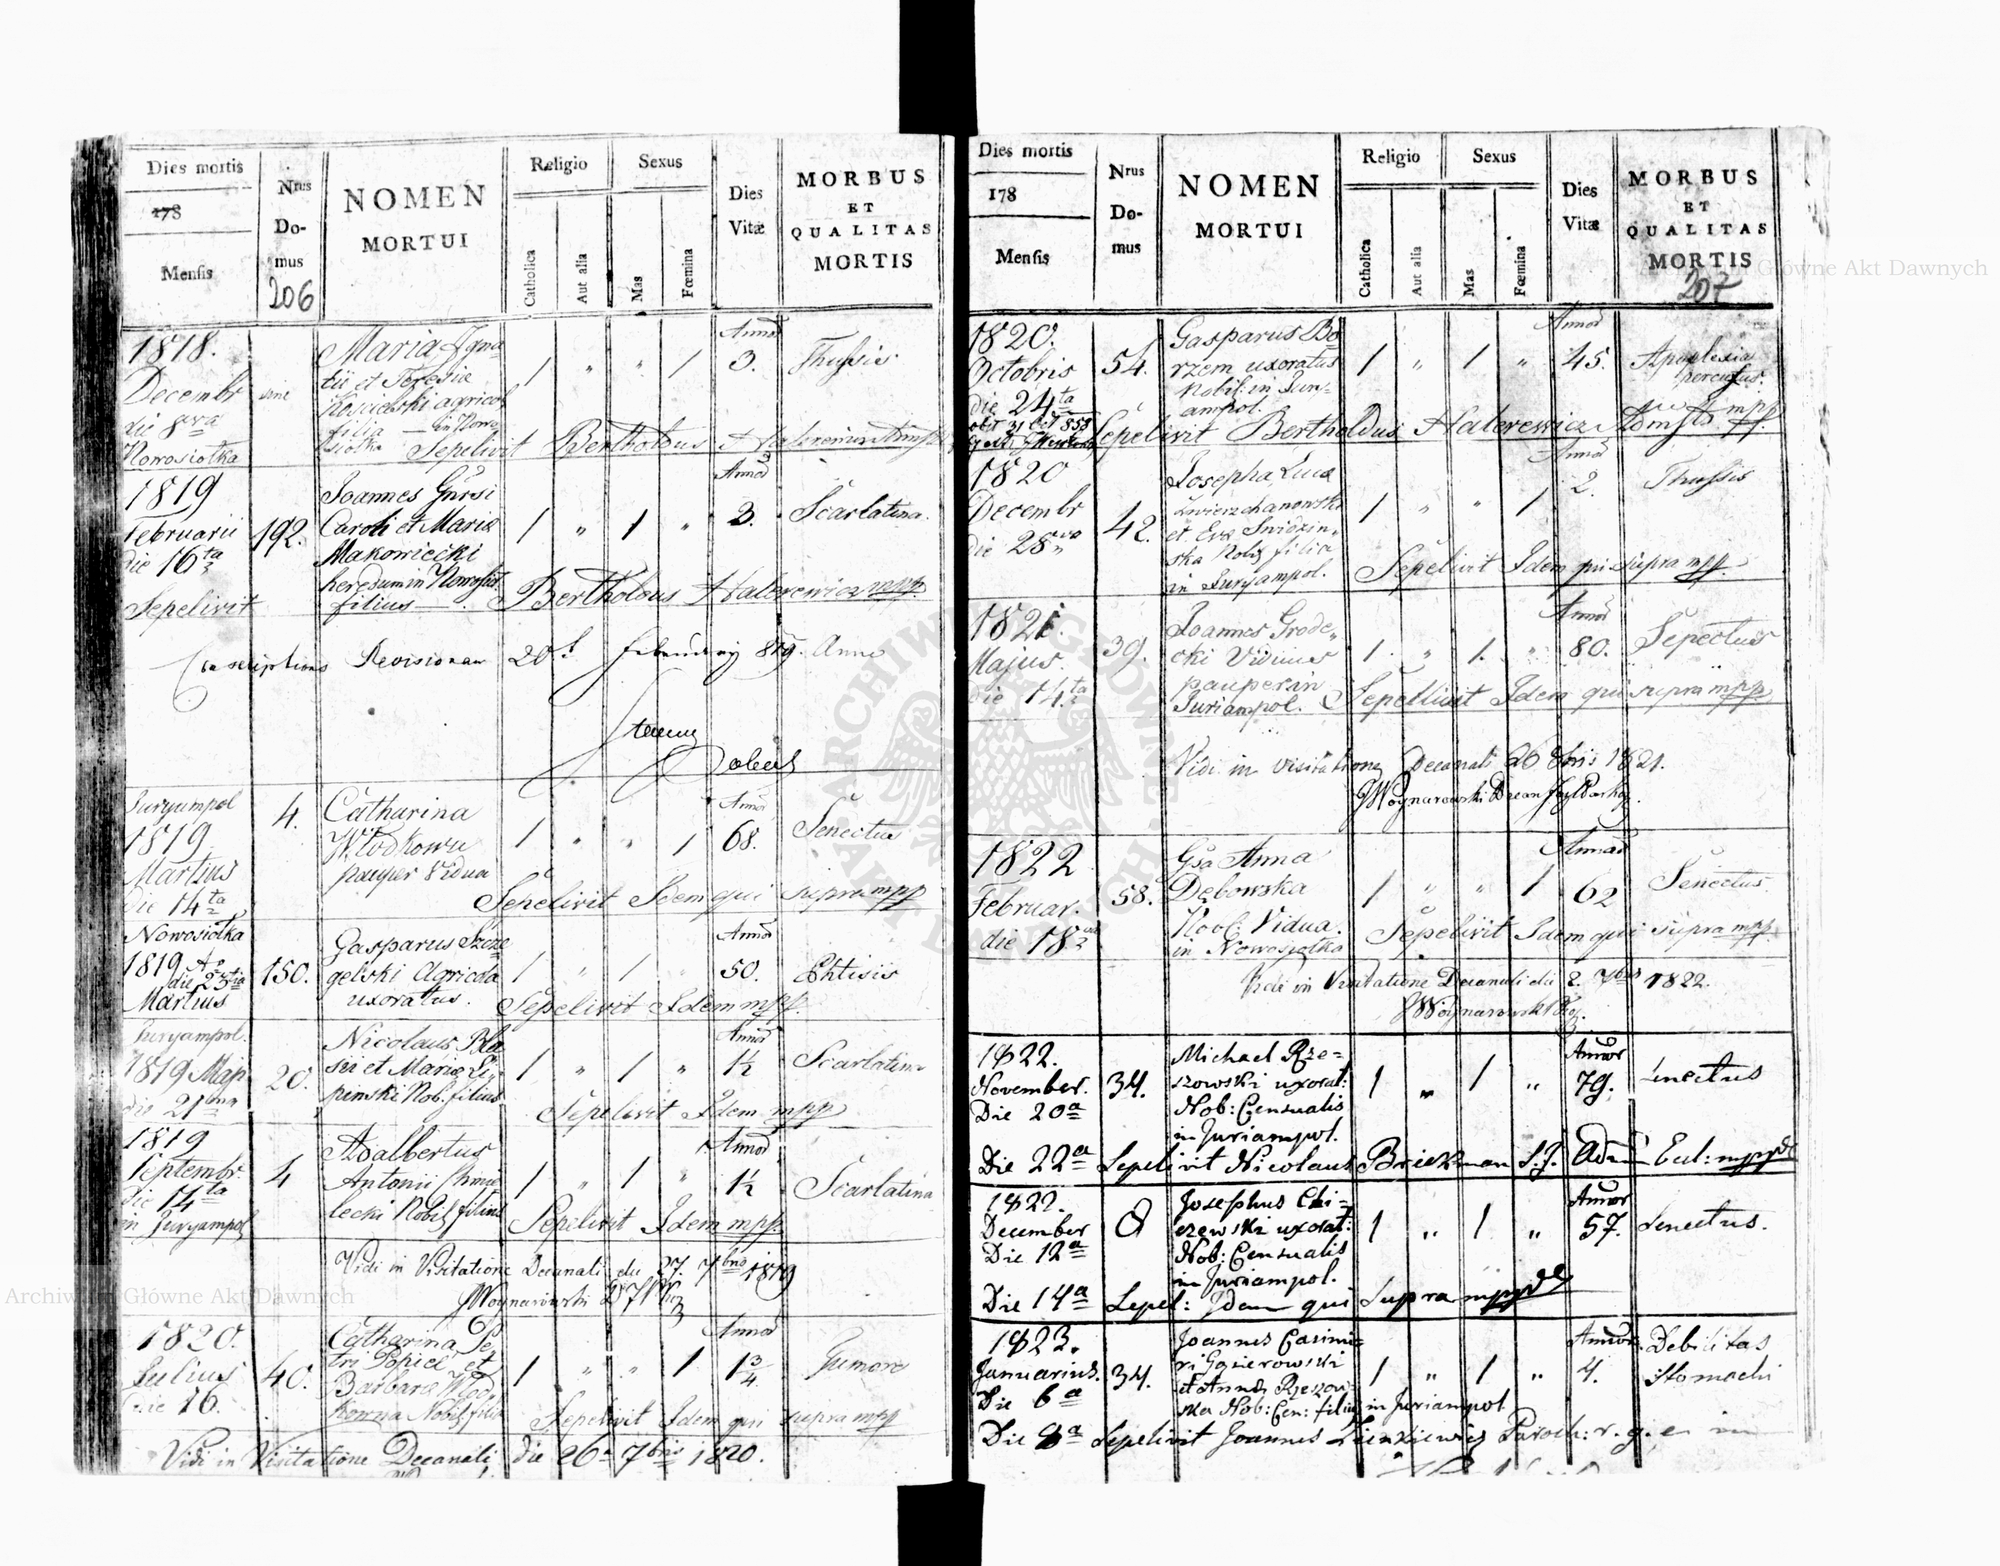 Dies mortis
178
Mensis
Nrus
Do-
mus
206
NOMEN
MORTUI
Religio
Catholica
Aut alia
Sexus
Mas
Fœmina
Dies
Vitæ
MORBUS
ET
QUALITAS
MORTIS
1818.
Decembr
die 8va
Nowosiołka
sine
Maria Igna-
tii et Teresia
Kościelski agricol
filia — in Nowo
siołka Sepelivit Bertholdus Halerewicz
1 " " 1
Annor
3.
Thyssis
1819
Februarii
die 16ta
192.
Joannes Gursi
Caroli et Maria
Makowiecki
heredum in Nowosioł
filius —
1 " 1 "
Annor
3.
Scarlatina.
Sepelivit Bertholdus Halerewicz mpp.
Conscriptions Revisionem 20 february 819. Anno
Juryampol
1819
Martius
die 14ta
4.
Catharina
Włodkowa
pauper Vidua
1 " " 1
Annor
68.
Senectus
Sepelivit Idem qui supra mpp
Nowosiołka
1819 Ao
die 23tia
Martius
150.
Gasparus Szcze
gelski Agricola
uxoratus.
1 " 1 "
Annor
50.
Phtisis
Sepelivit Idem mpp.
Juryampol.
1819 Maji
die 21ma
20.
Nicolaus Bla
sii et Maria Li-
pinski Nob. filius
1 " 1 "
Annor
1½
Scarlatina
Sepelivit Idem mpp
1819
Septembr.
die 14ta
in Juryampol
4
Adalbertus
Antonii Chmie
lecki Nobil filius
1 " 1 "
Annor
1½
Scarlatina
Sepelivit Idem mpp.
Vidi in Visitatione Decanali die 27. 7bris 1819
Woynarowski
1820.
Julius
die 16.
40.
Catharina Pe-
tri Popiel et
Barbara Włod
kowna Nobil filia
1 " " 1
Annor
1 3/4.
Tumore
Sepelivit Idem qui supra mpp
Vidi in Visitatione Decanali die 26a 7bris 1820.
Dies mortis
178
Mensis
Nrus
Do-
mus
NOMEN
MORTUI
Religio
Catholica
Aut alia
Sexus
Mas
Fœmina
Dies
Vitæ
MORBUS
ET
QUALITAS
MORTIS
207
1820.
Octobris
die 24ta
54.
Gasparus Bo-
rzem uxoratus
Nobil: in Jury-
ampol.
1 " 1 "
Annor
45.
Apoplexia
percussus.
Sepelivit Bertholdus Halerewicz Admstr mpp.
1820
Decembr
die 28va
42.
Josepha Luca
Zwierzchanowski
et Eva Swidzin-
ska Nobil filia
in Juryampol.
1 " " 1
Annor
2.
Thyssis
Sepelivit Idem qui supra mpp.
1821.
Majus.
die 14ta
39.
Joannes Grode-
cki Viduus
pauper in
Juriampol.
1. " 1. "
Annor
80.
Senectus
Sepellivit Idem qui supra mpp.
Vidi in visitatione Decanali 26 8bris 1821.
Woynarowski Decan
1822
Februar.
die 18va
58.
Gsa Anna
Dębowska
Nob. Vidua.
in Nowosiołka
1 " " 1
Annor
62
Senectus.
Sepelivit Idem qui supra mpp.
Vidi in Visitatione Decanali die 2. 7bris 1822.
Woynarowski
1822.
November.
Die 20a
34.
Michael Rze=
szowski uxorat:
Nob: Censualis
in Juriampol.
1 " 1 "
Annor
79.
Senectus
Die 22a Sepelivit Nicolaus Briekman S.J. Adm Eccl: mppde
1822.
December
Die 12a
0
Josephus Chi=
czewski uxorat:
Nob: Censualis
in Juriampol.
1 " 1 "
Annor
57.
Senectus.
Die 14a Sepel: Idem qui Supra mppde
1823.
Januarius.
Die 6a
34.
Joannes Casimi=
ri Gąsierowski
et Anna Rzeszow
ska Nob: Cen: filius in Juriampol
1 " 1 "
Annor.
4.
Debilitas
stomachi
Die 8a Sepelivit Joannes Sienkiewicz Paroch: r. g. e in
Archiwum Główne Akt Dawnych
Archiwum Główne Akt Dawnych
ARCHIWUM GŁÓWNE AKT DAWNYCH